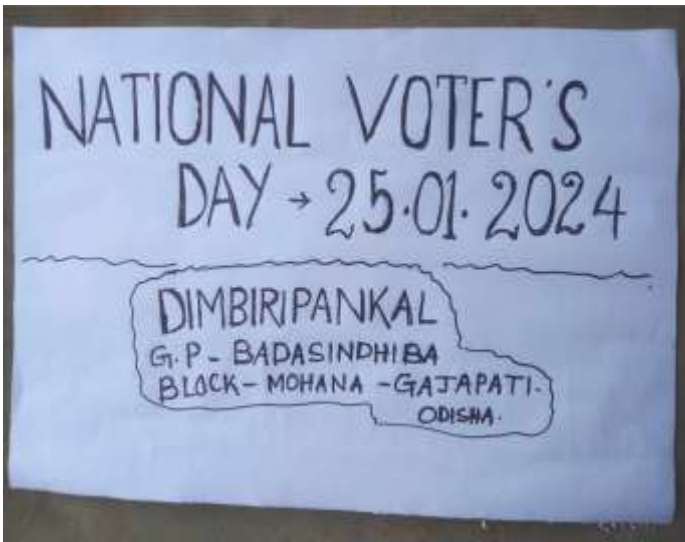 NATIONAL VOTER'S
DAY → 25.01.2024
DIMBIRIPANKAL
G.P - BADASINDHIBA
BLOCK - MOHANA - GAJAPATI.
ODISHA.